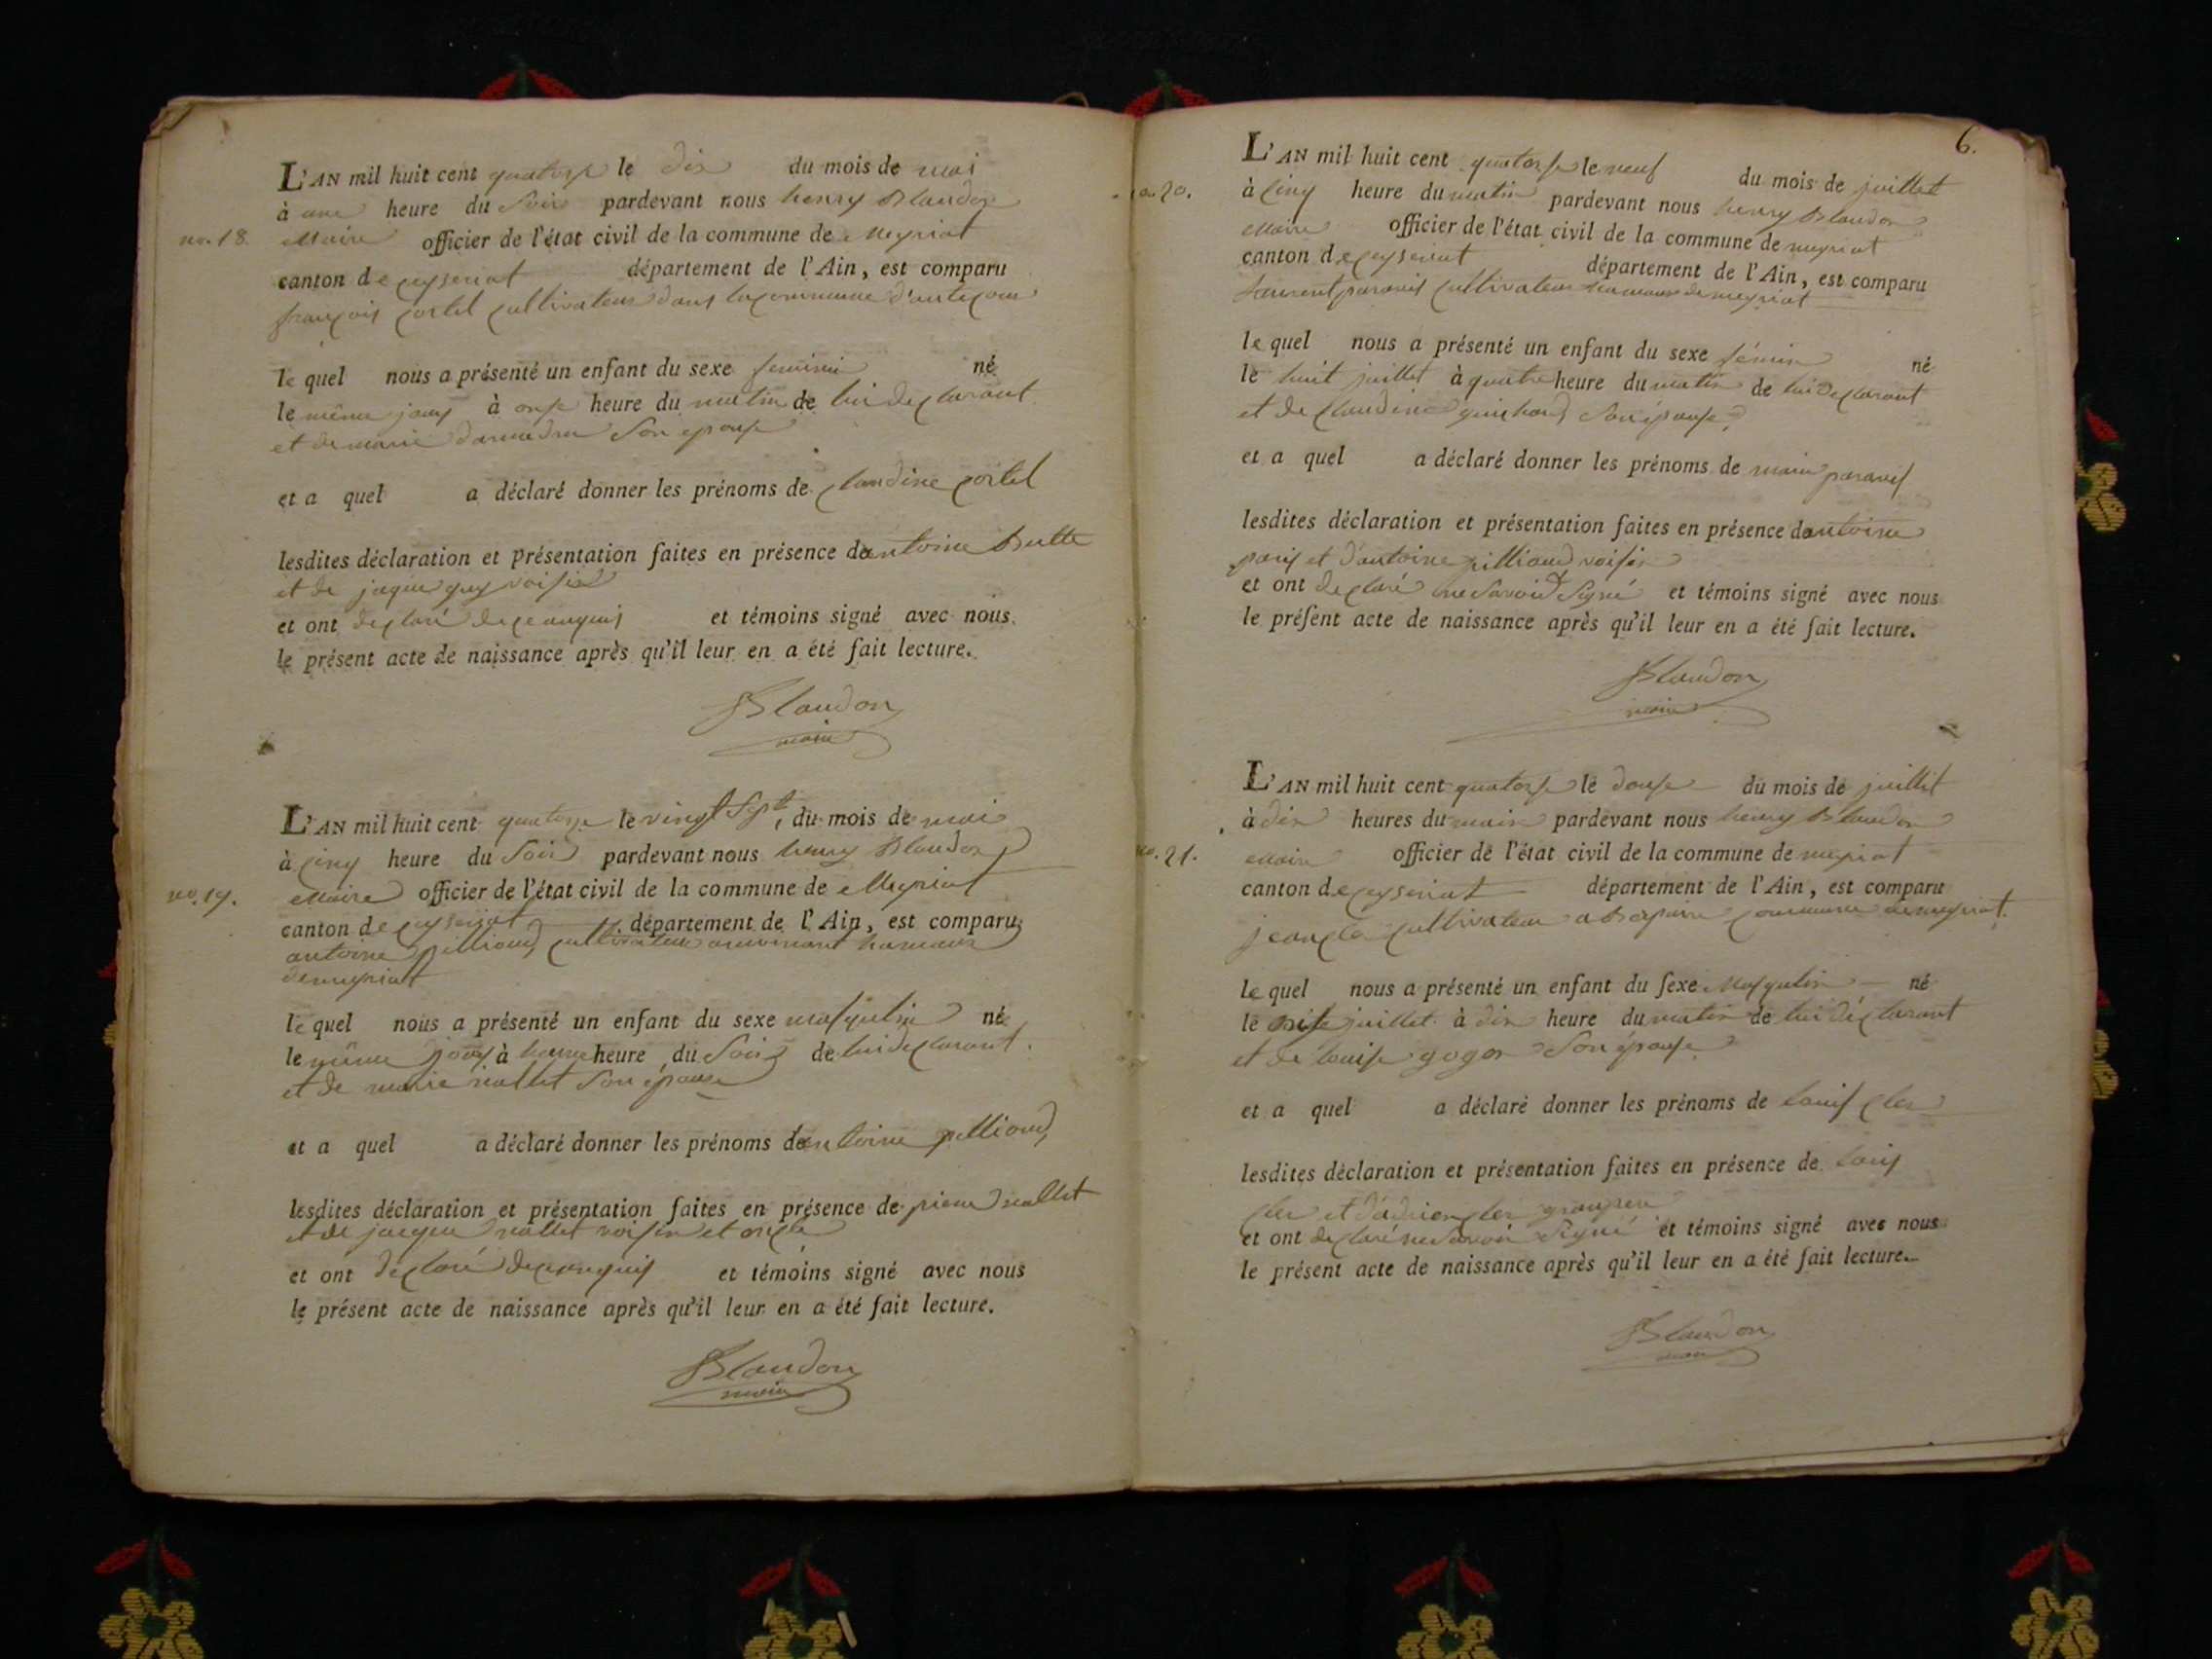 L'AN mil huit cent quatorse le dix du mois de mai
à une heure du Soir pardevant nous henry Blandon
no. 18. Maire officier de l'état civil de la commune de Meyriat
canton de ceyseriat département de l'Ain, est comparu
françois cortel cultivateur dans la commune
le quel nous a présenté un enfant du sexe feminin né
le même jour à onse heure du matin de lui declarant
et de marie Son epouse
et a quel a déclaré donner les prénoms de claudine cortel
lesdites déclaration et présentation faites en présence dantoine
et de jaque guy voisin
et ont declaré de ce enquis et témoins signé avec nous.
le présent acte de naissance après qu'il leur en a été fait lecture.
Blandon
maire
L'AN mil huit cent quatorse le vingt Sept, du mois de mai
à cinq heure du Soir pardevant nous henry Blandon
no. 19. Maire officier de l'état civil de la commune de Meyriat
canton de ceyseriat département de l'Ain, est comparu
antoine pilliond cultivateur hameaux
de meyriat
le quel nous a présenté un enfant du sexe masqulin né
le même jour à heure du Soir de lui declarant.
et de marie nallet Son épouse
et a quel a déclaré donner les prénoms dantoine pilliond
lesdites déclaration et présentation faites en présence de pierre nallet
et de jaque nallet voisin et oncle
et ont declaré de ce enquis et témoins signé avec nous
le présent acte de naissance après qu'il leur en a été fait lecture.
Blandon
maire
6.
L'AN mil huit cent quatorse le neuf du mois de juillet
no. 20. à cinq heure du matin pardevant nous henry Blandon
Maire officier de l'état civil de la commune de meyriat
canton de ceyseriat département de l'Ain, est comparu
Laurent paravis cultivateur hameaux de meyriat
le quel nous a présenté un enfant du sexe fémin né
le huit juillet à quatre heure du matin de lui declarant
et de claudine guichard Son épouse
et a quel a déclaré donner les prénoms de marie paravis
lesdites déclaration et présentation faites en présence dantoine
paris et d'antoine pilliond voisin
et ont declaré ne Savoir Signé et témoins signé avec nous
le présent acte de naissance après qu'il leur en a été fait lecture.
Blandon
maire
L'AN mil huit cent quatorse le douse du mois de juillet
à dix heures du matin pardevant nous henry Blandon
no. 21. Maire officier de l'état civil de la commune de meyriat
canton de ceyseriat département de l'Ain, est comparu
jean cler cultivateur commune de meyriat.
le quel nous a présenté un enfant du sexe Masqulin né
le onse juillet à dix heure du matin de lui déclarant
et de louise gogon Son épouse
et a quel a déclaré donner les prénoms de louis cler
lesdites déclaration et présentation faites en présence de louis
cler et d'adrien cler granpere
et ont declaré ne Savoir Signé et témoins signé avec nous
le présent acte de naissance après qu'il leur en a été fait lecture.
Blandon
maire